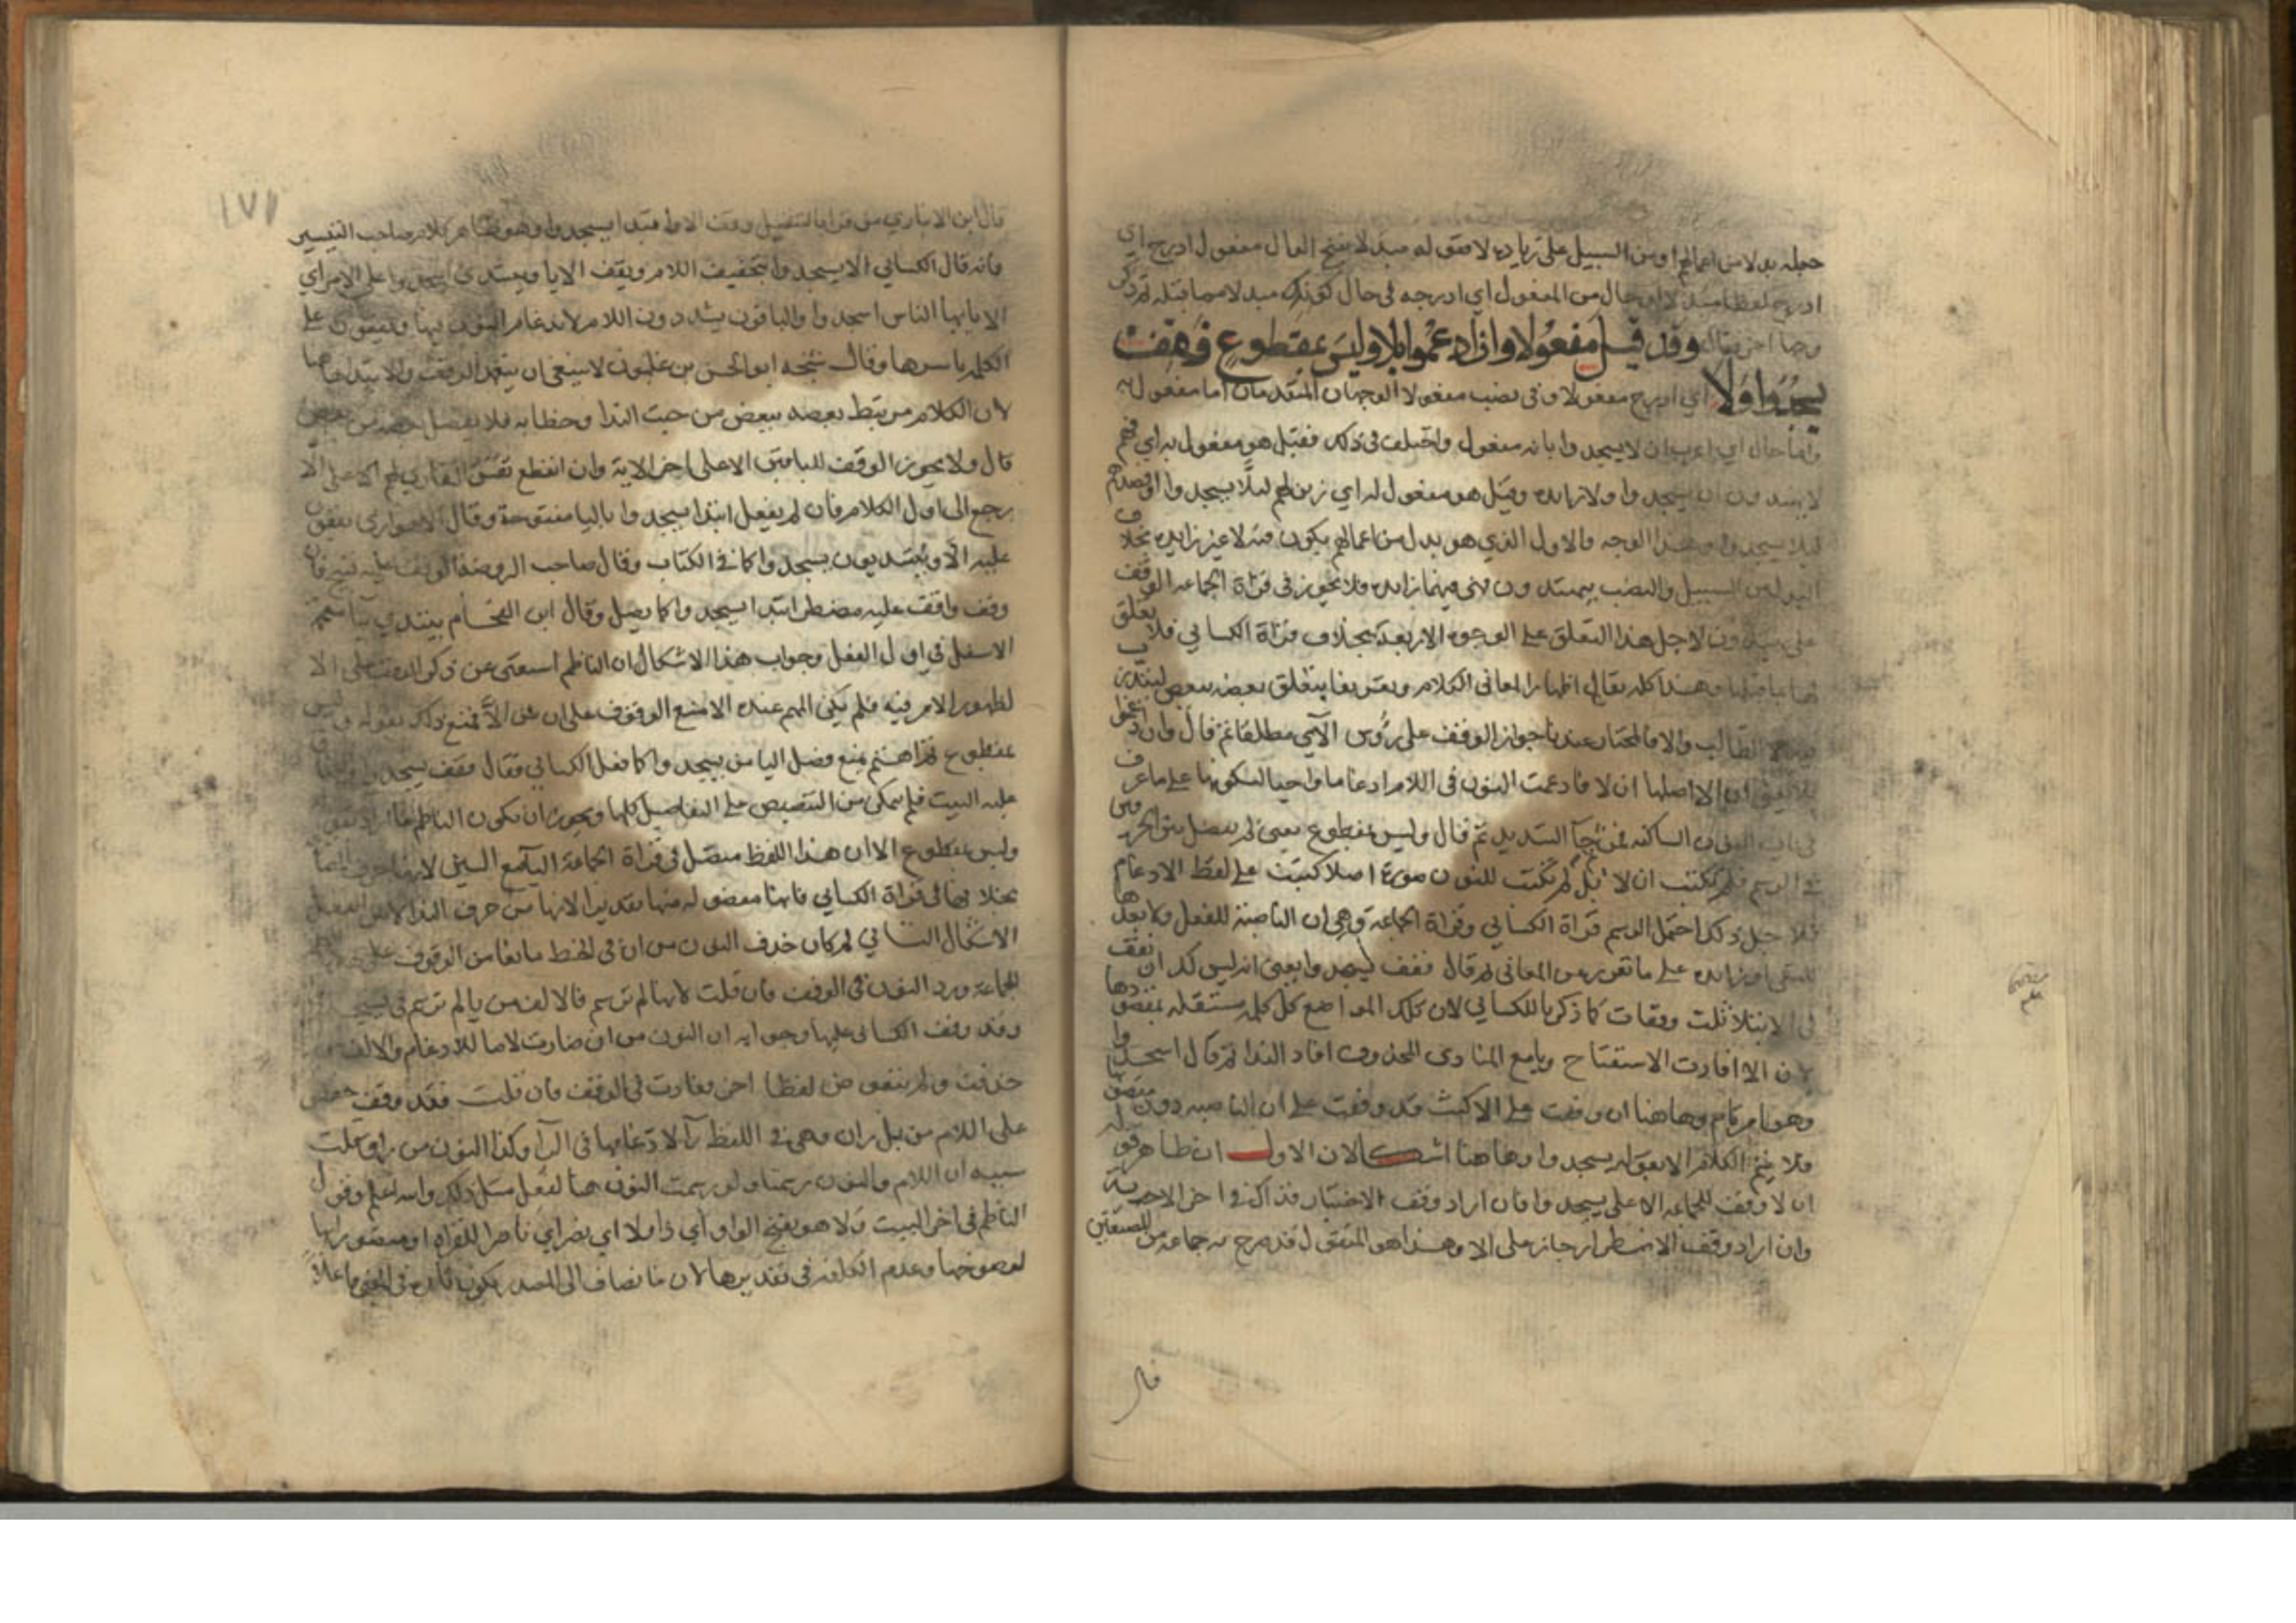 جعله بدلا من اعمالهم او من السبيل على زيادة لا فقوله مبدلا بفتح الدال مفعول ادرج اي
ادرج لفظا مبدلا او حال من المفعول اي ادرجه في حال كونك مبدلا مما قبله ثم ذكر
وجها اخر فقال وقد قيل مفعولا وان ادغموا بلا وليس بمقطوع فقف
يسجدوا ولا اي ادرج مفعولا وفي نصب مفعولا الوجهان المتقدمان اما مفعول له
واما حال اي اعرب ان لا يسجدوا بانه مفعول واختلف في ذلك فقيل هو مفعول به اي فهم
لا يهتدون ان يسجدوا ولا زائدة وقيل هو مفعول له اي زين لهم ليلا يسجدوا او فصدهم
ليلا يسجدوا وهذا الوجه والاول الذي هو بدل من اعمالهم يكون فيه لا غير زايدة بخلاف
البدل من السبيل والنصب بيهتدون لا فيهما زايدة فلا يجوز في قراة الجماعة الوقف
على يهتدون لاجل هذا التعلق على الوجوه الاربعة بخلاف قراة الكسائي فلا يتعلق
لها بما قبلها وهذا كله يقال اظهارا لمعاني الكلام وتعريفا بتعلق بعضه ببعض ليتدرب
الطالب والا فالمختار عندنا جواز الوقف على رؤس الآي مطلقا ثم قال وان ادغموا
بلا يعني ان الا اصلها ان لا فادغمت النون في اللام ادغاما واجبا لسكونها على ما عرف
في باب النون الساكنة فمن ثم جآ التشديد ثم قال وليس بمقطوع يعني لم يفصل بين الحرفين
في الرسم فلم تكتب ان لا بل لم تكتب للنون صورة اصلا كتبت على لفظ الادغام
فلاجل ذلك احتمل الرسم قراة الكسائي وقراة الجماعة وهي ان الناصبة للفعل ولا بعدها
للنفي او زايدة على ما تقرر من المعاني ثم قال فقف يسجدوا يعني انه ليس لك ان تقف
في الابتلا ثلث وقفات كما ذكرنا للكسائي لان تلك المواضع كل كلمة مستقلة بمقصودها
لان الا افادت الاستفتاح ويا مع المنادى المحذوف افاد الندا ثم قال اسجدوا
وهو امر تام وهاهنا ان وقفت على الا كنت قد وقفت على ان الناصبة دون منصوبها
فلا يتم الكلام الا بقوله يسجدوا وهاهنا اشكالان الاول ان ظاهر قوله
ان لا وقف للجماعة الا على يسجدوا فان اراد وقف الاختيار فذاك في اخر الاية
وان اراد وقف الاضطرار جاز على الا وهذا هو المنقول قد صرح به جماعة من المصنفين
قال
١٧١
قال ابن الانباري من قرا بالتثقيل وقف الا وابتدا يسجدوا وهو ظاهر كلام صاحب التيسير
فانه قال الكسائي الا يسجدوا بتخفيف اللام ويقف الايا ويبتدي اسجدوا على الامر اي
الا يا ايها الناس اسجدوا والباقون يشددون اللام لاندغام النون فيها ويقفون على
الكلمة باسرها وقال شيخه ابو الحسن بن غلبون لا ينبغي ان يتعمد الوقف والابتدا هاهنا
لان الكلام مرتبط بعضه ببعض من حيث الندا وخطابه فلا يفصل بعضه من بعض
قال ولا يجوز الوقف للباقين الا على اخر الاية وان انقطع نفس القاري لهم الا على الا
رجع الى اول الكلام فان لم يفعل ابتدا يسجدوا باليا مفتوحة وقال الاهوازي يقفون
عليه الا ويبتديون يسجدوا كما في الكتاب وقال صاحب الروضة الوقف عليه قبيح فان
وقف واقف عليه مضطر ابتدا يسجدوا كما يصل وقال ابن الفحام يبتدي بيا معجمة
الاسفل في اول الفعل وجواب هذا الاشكال ان الناظم استغنى عن ذكر الوقف على الا
لظهور الامر فيه فلم يكن المهم عنده الا منع الوقف على ان من الا فمنع ذلك بقوله وليس
بمقطوع ثم اهتم بمنع فصل اليا من يسجدوا كما فعل الكسائي فقال فقف يسجدوا
عليه البيت فلم يتمكن من التنصيص على التفاصيل كلها ويجوز ان يكون الناظم ما اراد بقوله
وليس بمقطوع الا ان هذا اللفظ متصل في قراة الجماعة اليآ مع السين لانها حرف المضارعة
بخلافها في قراة الكسائي فانها مفصولة منها تقديرا لانها من حرف الندا لا من الفعل
الاشكال الثاني لم كان حذف النون من ان في الخط مانعا من الوقوف عليها
للجماعة ورد النون في الوقف فان قلت لانها لم ترسم فالالف من يا لم ترسم في يسجدوا
وقد وقف الكسائي عليها وجوابه ان النون من ان صارت لاما للادغام والالف
حذفت ولم يبق من لفظها اخر فعادت في الوقف فان قلت فقد وقف حفص
على اللام من بل ران وهي في اللفظ رآ لادغامها في الرآ وكذا النون من من راق قلت
سببه ان اللام والنون رسمتا ولو رسمت النون هنا لفعل مثل ذلك والله اعلم وقول
الناظم في اخر البيت ولا هو بفتح الواو اي ذا ولا اي نصر اي ناصرا للقراة او منصورا بها
لوضوحها وعدم الكلفة في تقديرها لان ما يضاف الى المصدر يكون تارة في المعنى فاعلا